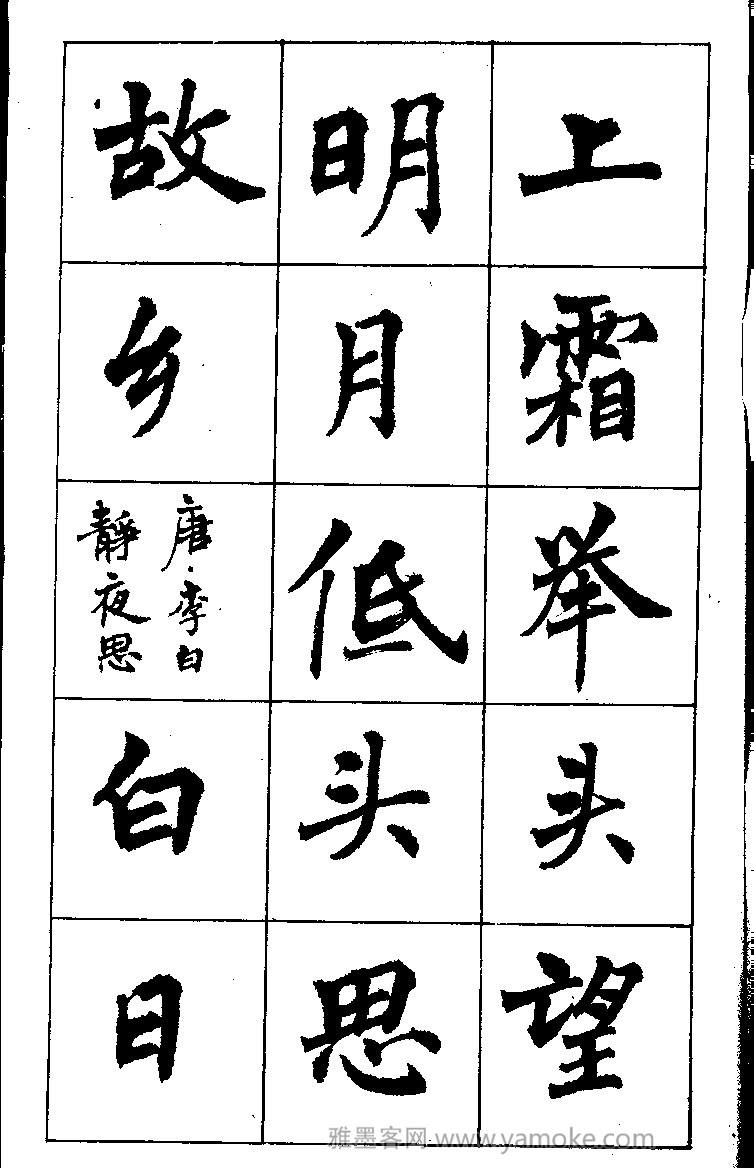 上霜举头望
明月低头思
故乡
唐·李白
静夜思
白日
雅墨客网 www.yamoke.com